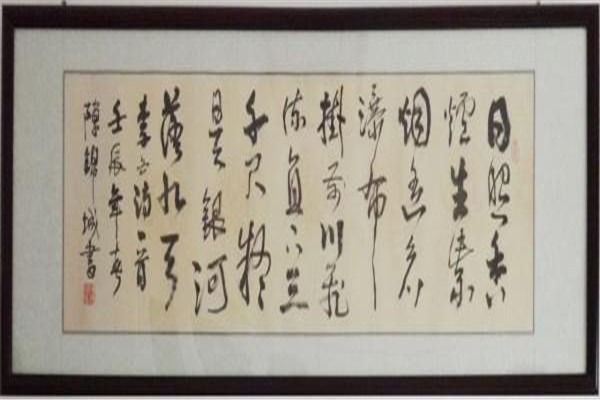 日照香
爐生紫
烟遥看
瀑布
掛前川飛
流直下三
千尺疑
是銀河
落九天
李白詩一首
壬辰年春
陳錦城書